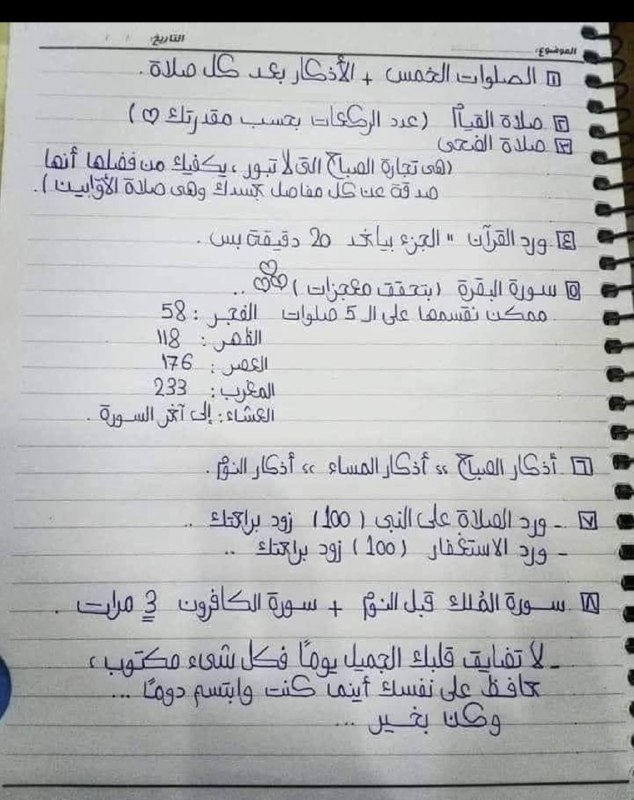 التاريخ: / /
الموضوع:
١ الصلوات الخمس + الأذكار بعد كل صلاة .
٢ صلاة القيام (عدد الركعات بحسب مقدرتك ♡)
٣ صلاة الضحى
(هى تجارة الصباح التى لا تبور ، يكفيك من فضلها أنها
صدقة عن كل مفاصل جسدك وهى صلاة الأوّابين).
٤ ورد القرآن " الجزء بياخد 20 دقيقة بس .
٥ سورة البقرة (بتحقق معجزات) ♡♡♡ ..
ممكن نقسمها على الـ 5 صلوات الفجر : 58
الظهر : 118
العصر : 176
المغرب : 233
العشاء : إلى آخر السورة .
٦ أذكار الصباح ،، أذكار المساء ،، أذكار النوم .
٧ - ورد الصلاة على النبى (100) زود براحتك ..
- ورد الاستغفار (100) زود براحتك ..
٨ سورة المُلك قبل النوم + سورة الكافرون 3 مرات .
- لا تضايق قلبك الجميل يومًا فكل شىء مكتوب ،
حافظ على نفسك أينما كنت وابتسم دومًا ...
وكن بخير ...